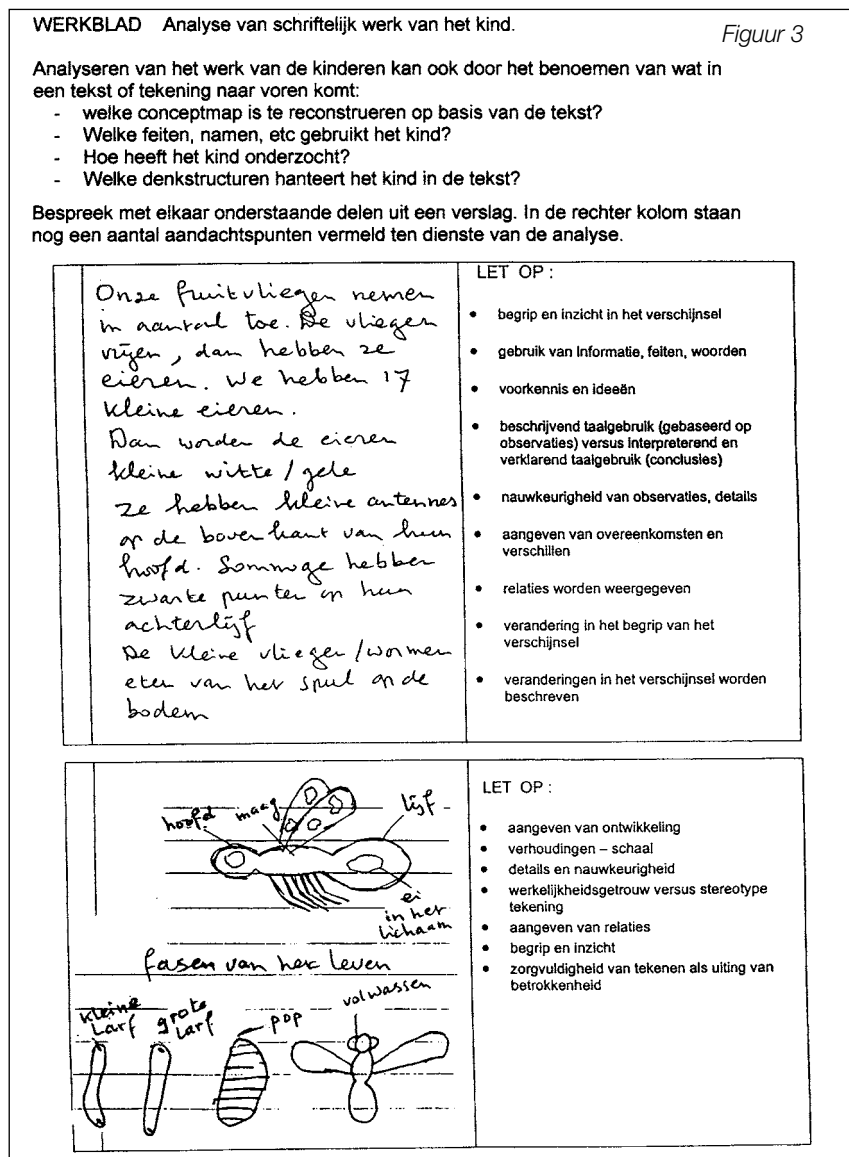 WERKBLAD Analyse van schriftelijk werk van het kind.
Figuur 3
Analyseren van het werk van de kinderen kan ook door het benoemen van wat in
een tekst of tekening naar voren komt:
- welke conceptmap is te reconstrueren op basis van de tekst?
- Welke feiten, namen, etc gebruikt het kind?
- Hoe heeft het kind onderzocht?
- Welke denkstructuren hanteert het kind in de tekst?
Bespreek met elkaar onderstaande delen uit een verslag. In de rechter kolom staan
nog een aantal aandachtspunten vermeld ten dienste van de analyse.
Onze fruitvliegen nemen
in aantal toe. De vliegen
vrijen, dan hebben ze
eieren. We hebben 17
kleine eieren.
Dan worden de eieren
kleine witte / gele
ze hebben kleine antennes
op de bovenkant van hun
hoofd. Sommige hebben
zwarte punten op hun
achterlijf
De kleine vliegen/wormen
eten van het spul op de
bodem
LET OP :
• begrip en inzicht in het verschijnsel
• gebruik van Informatie, feiten, woorden
• voorkennis en ideeën
• beschrijvend taalgebruik (gebaseerd op
observaties) versus interpreterend en
verklarend taalgebruik (conclusies)
• nauwkeurigheid van observaties, details
• aangeven van overeenkomsten en
verschillen
• relaties worden weergegeven
• verandering in het begrip van het
verschijnsel
• veranderingen in het verschijnsel worden
beschreven
hoofd
maag
lijf
ei
in het
lichaam
fasen van het leven
kleine
Larf
grote
larf
pop
volwassen
LET OP :
• aangeven van ontwikkeling
• verhoudingen – schaal
• details en nauwkeurigheid
• werkelijkheidsgetrouw versus stereotype
tekening
• aangeven van relaties
• begrip en inzicht
• zorgvuldigheid van tekenen als uiting van
betrokkenheid